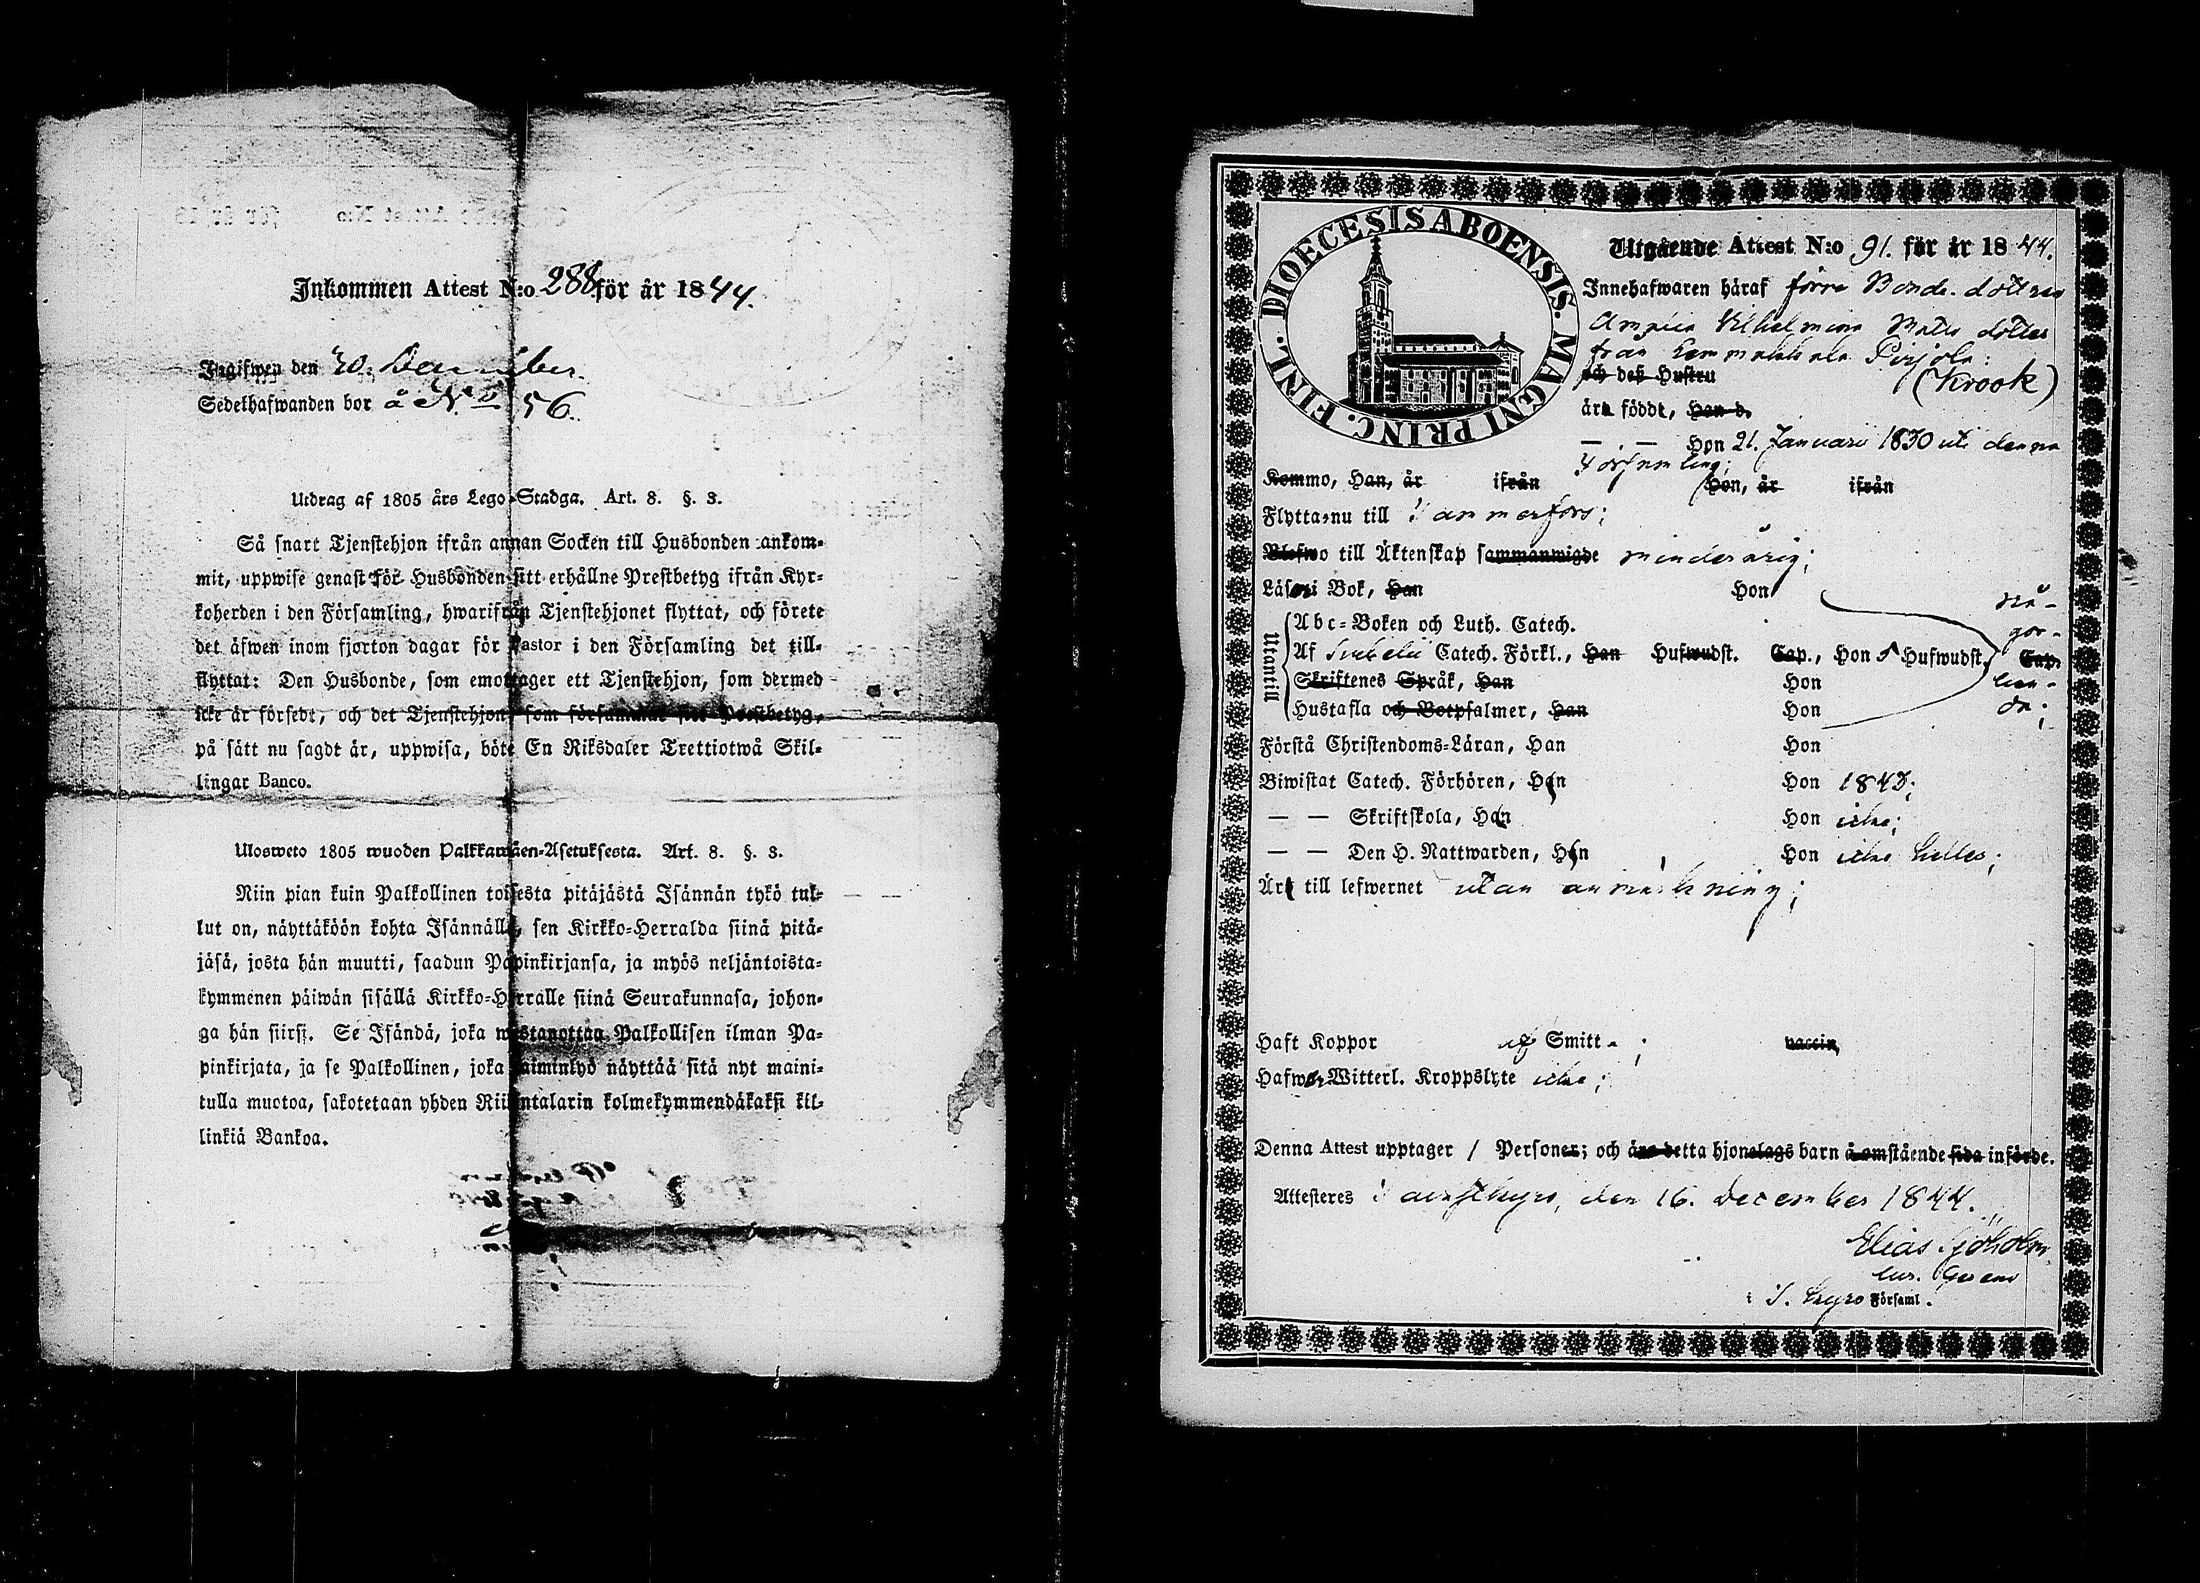 Inkommen Attest N:o 288 för år 1844.
Ingifwen den 30. December.
Sedelhafwanden bor å N:o 56.
Utdrag af 1805 års Lego-Stadga. Art. 8. §. 3.
Så snart Tjenstehjon ifrån annan Socken till Husbonden ankom-
mit, uppwise genast för Husbonden sitt erhållne Prestbetyg ifrån Kyr-
koherden i den Församling, hwarifrån Tjenstehjonet flyttat, och förete
det äfwen inom fjorton dagar för Pastor i den Församling det till-
flyttat: Den Husbonde, som emottager ett Tjenstehjon, som dermed
icke är försedt, och det Tjenstehjon, som försummar sitt Prestbetyg,
på sätt nu sagdt är, uppwisa, böte En Riksdaler Trettiotwå Skil-
lingar Banco.
Ulosweto 1805 wuoden Palkkawäen-Asetuksesta. Art. 8. §. 3.
Niin pian kuin Palkollinen toisesta pitäjästä Isännän tykö tul-
lut on, näyttäköön kohta Isännälle, sen Kirkko-Herralda siinä pitä-
jäsä, josta hän muutti, saadun Papinkirjansa, ja myös neljäntoista-
kymmenen päiwän sisällä Kirkko-Herralle siinä Seurakunnasa, johon-
ga hän siirsi. Se Isändä, joka wastanottaa Palkollisen ilman Pa-
pinkirjata, ja se Palkollinen, joka laiminlyö näyttää sitä nyt maini-
tulla muotoa, sakotetaan yhden Riikintalarin kolmekymmendäkaksi kil-
linkiä Bankoa.
FINL. DIOECESIS ABOENSIS. MAGNI PRINC.
Utgående Attest N:o 91. för år 1844.
Innehafwaren häraf förre Bonde dottren
Wilhelmina Matts dotter
från Pirjola:
och deß Hustru (Krook)
äro födde, Han d.
— — Hon 21. Januarii 1830 uti denna
Församling;
Kommo, Han, år ifrån Hon, år ifrån
Flytta nu till Tammerfors;
Blefwo till Äktenskap sammanwigde minderårig;
Läsa i Bok, Han Hon nå-
Utantill
Abc-Boken och Luth. Catech. gor-
Af Svebelii Catech. Förkl., Han Hufwudst. Cap., Hon 5 Hufwudst. Cap.
Skriftenes Språk, Han Hon lun-
Hustafla och Botpsalmer, Han Hon da;
Förstå Christendoms-Läran, Han Hon
Biwistat Catech. Förhören, Han Hon 1843;
— — Skriftskola, Han Hon icke;
— — Den H. Nattwarden, Han Hon icke heller;
Äro till lefwernet utan anmärkning;
Haft Koppor af Smitt-; vaccin,
Hafwa Witterl. Kroppslyte icke;
Denna Attest upptager 1 Personer; och äro detta hjonelags barn å omstående sida införde.
Attesteres Tavastkyro, den 16. December 1844.
Elias Sjöholm,
i T. kyro Församl.